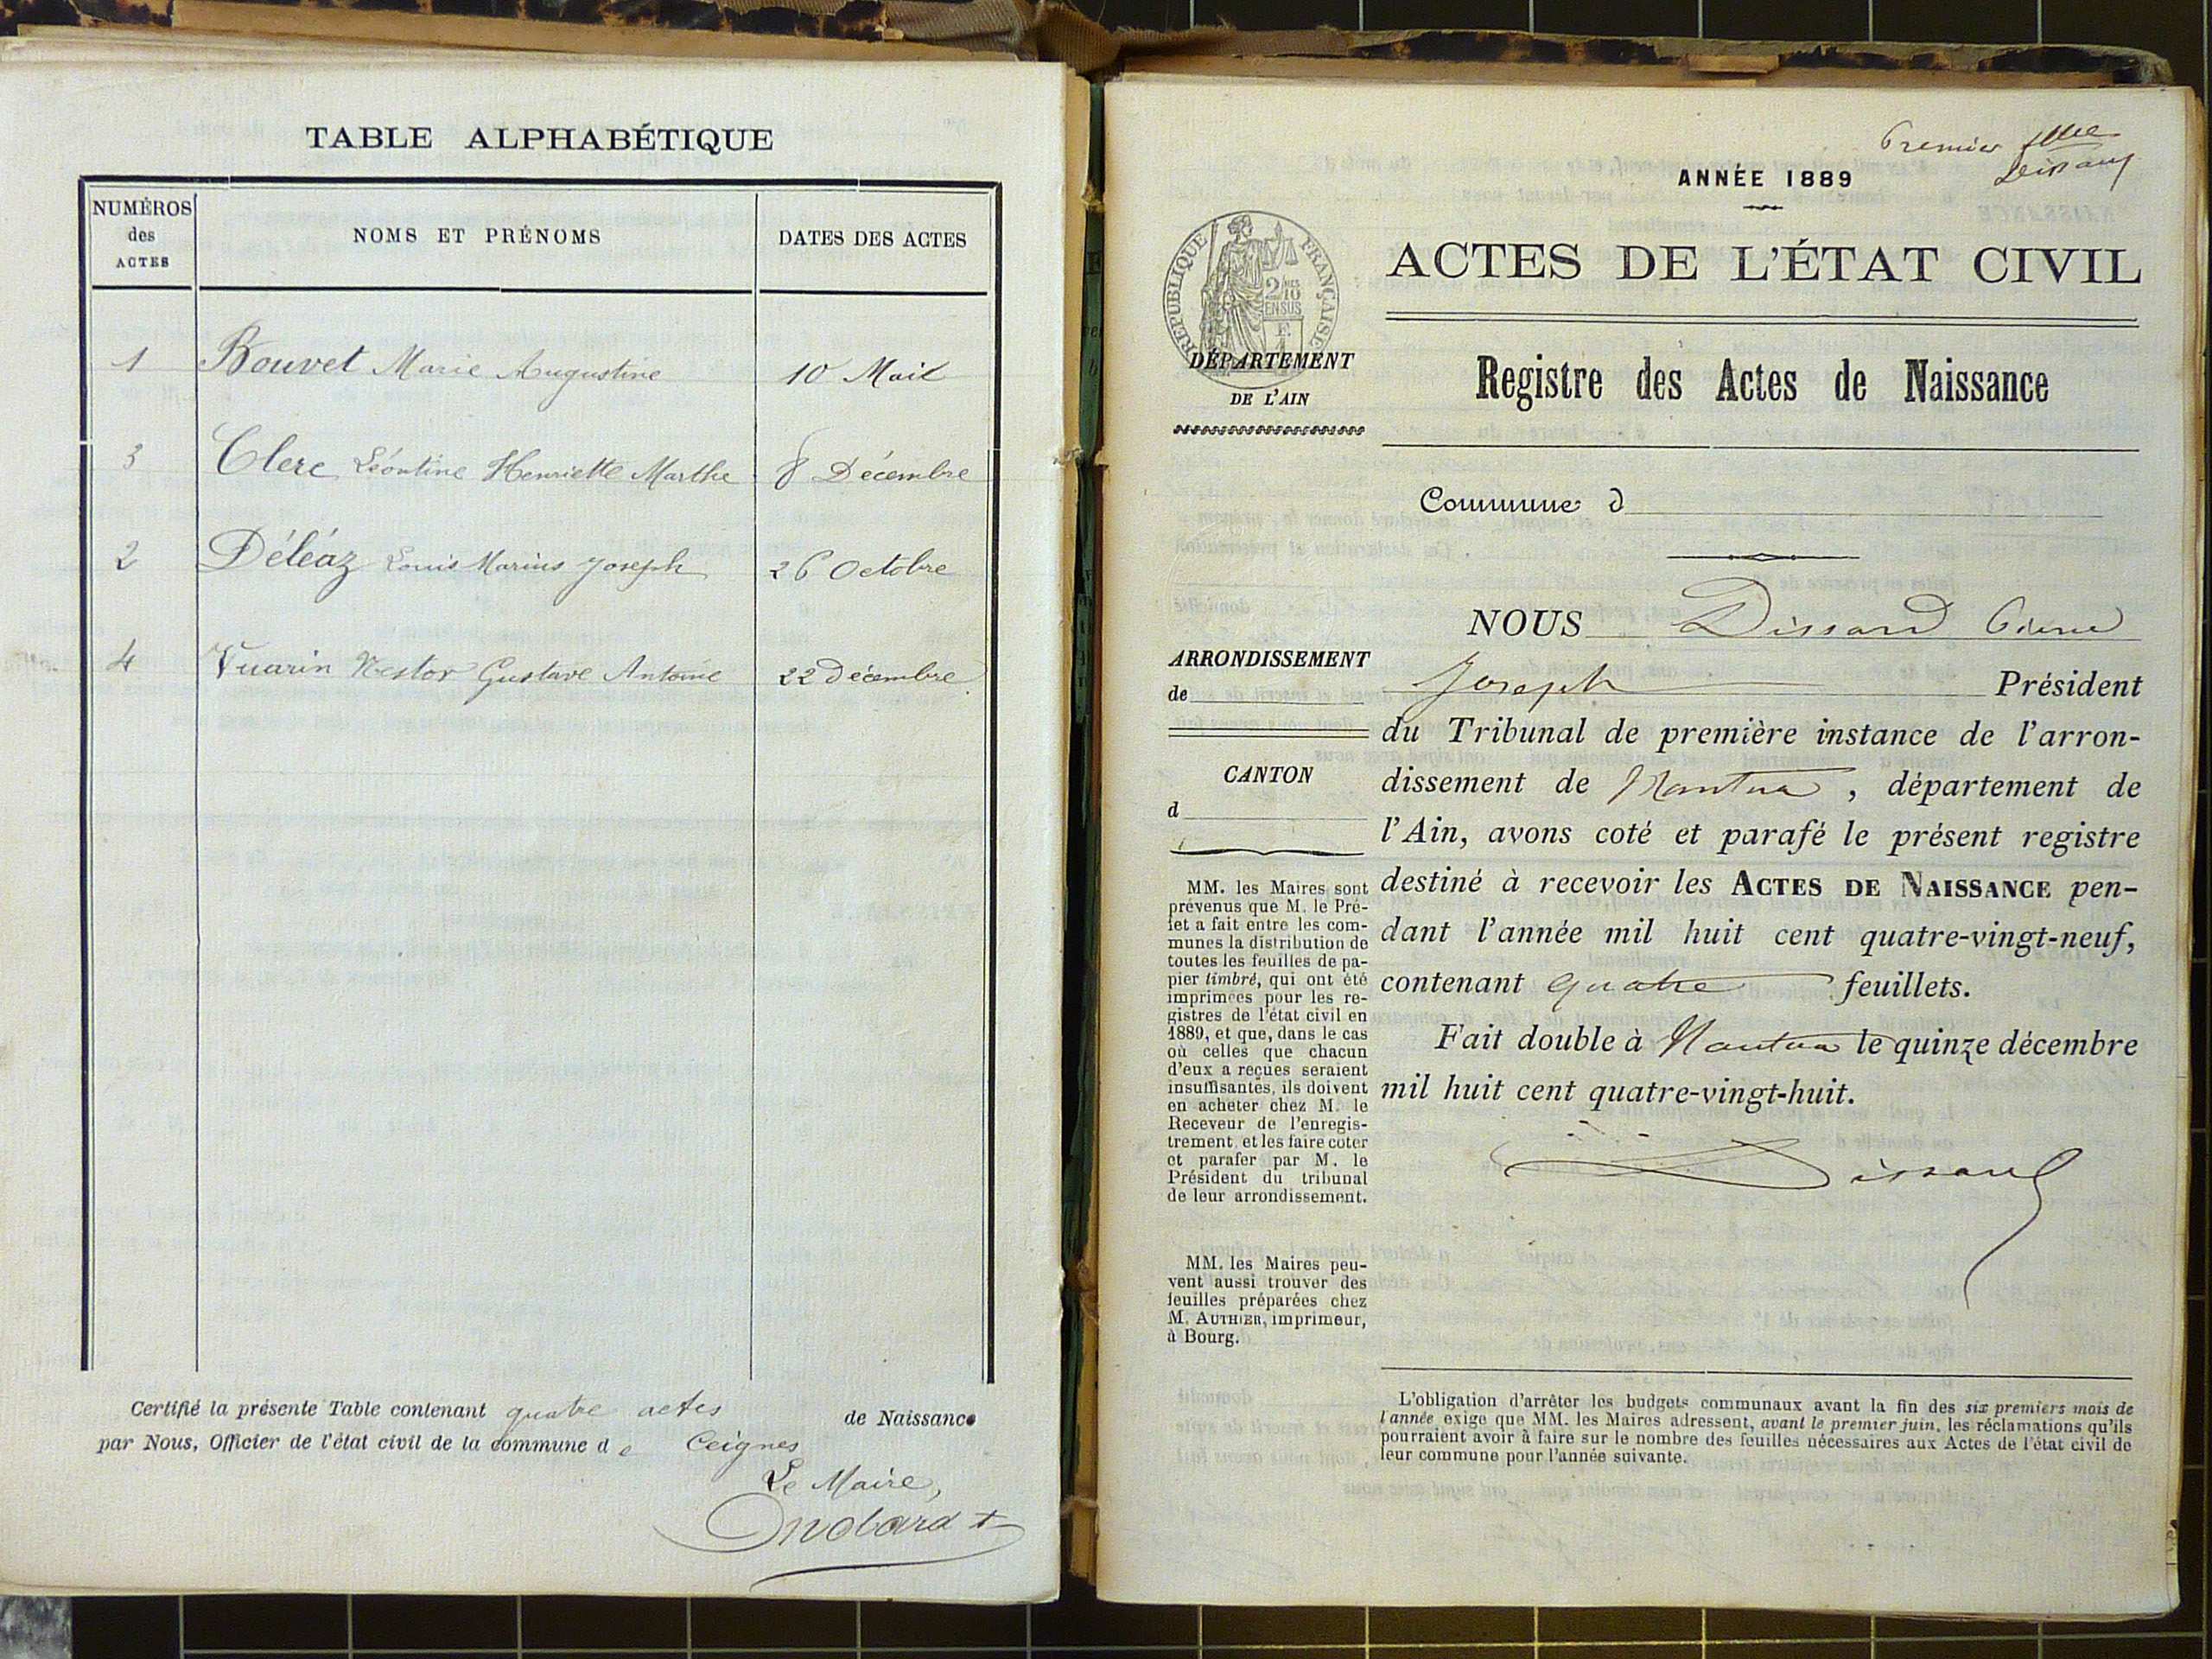 TABLE ALPHABÉTIQUE
NUMÉROS
des
ACTES
NOMS ET PRÉNOMS
DATES DES ACTES
1 Bouvet Marie Augustine 10 Mai
3 Clerc Léontine Henriette Marthe 8 Décembre
2 Déléaz Louis Marius Joseph 26 Octobre
4 Vuarin Nestor Gustave Antoine 22 Décembre
Certifié la présente Table contenant quatre actes de Naissance
par Nous, Officier de l'état civil de la commune de Ceignes
Le Maire,
Premier
Dissard
ANNÉE 1889
RÉPUBLIQUE FRANÇAISE
ACTES DE L'ÉTAT CIVIL
DÉPARTEMENT
DE L'AIN
Registre des Actes de Naissance
Commune d
NOUS Dissard Pierre
ARRONDISSEMENT
de
Joseph Président
du Tribunal de première instance de l'arron-
CANTON
d
dissement de Nantua, département de
l'Ain, avons coté et parafé le présent registre
destiné à recevoir les ACTES DE NAISSANCE pen-
dant l'année mil huit cent quatre-vingt-neuf,
contenant quatre feuillets.
Fait double à Nantua le quinze décembre
mil huit cent quatre-vingt-huit.
Dissard
MM. les Maires sont
prévenus que M. le Pré-
fet a fait entre les com-
munes la distribution de
toutes les feuilles de pa-
pier timbré, qui ont été
imprimées pour les re-
gistres de l'état civil en
1889, et que, dans le cas
où celles que chacun
d'eux a reçues seraient
insuffisantes, ils doivent
en acheter chez M. le
Receveur de l'enregis-
trement, et les faire coter
et parafer par M. le
Président du tribunal
de leur arrondissement.
MM. les Maires peu-
vent aussi trouver des
feuilles préparées chez
M. AUTHIER, imprimeur,
à Bourg.
L'obligation d'arrêter les budgets communaux avant la fin des six premiers mois de
l'année exige que MM. les Maires adressent, avant le premier juin, les réclamations qu'ils
pourraient avoir à faire sur le nombre des feuilles nécessaires aux Actes de l'état civil de
leur commune pour l'année suivante.